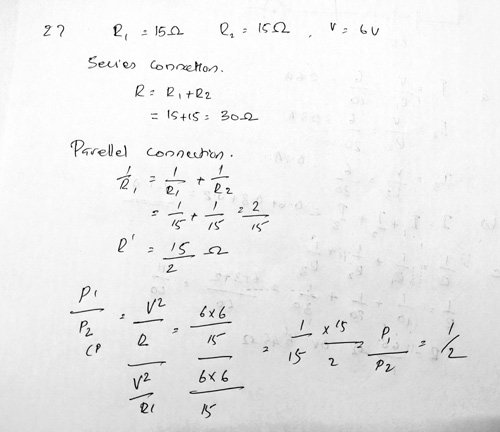 27 R₁ = 15Ω R₂ = 15Ω, V = 6V
Series connection.
R = R₁ + R₂
= 15 + 15 = 30Ω
Parellel connection.
1/R₁ = 1/R₁ + 1/R₂
= 1/15 + 1/15 = 2/15
R' = 15/2 Ω
P₁/P₂ = (V²/R)/(V²/R₁) = (6×6/15)/(6×6/15) = 1/15 × 15/2 = P₁/P₂ = 1/2
CP